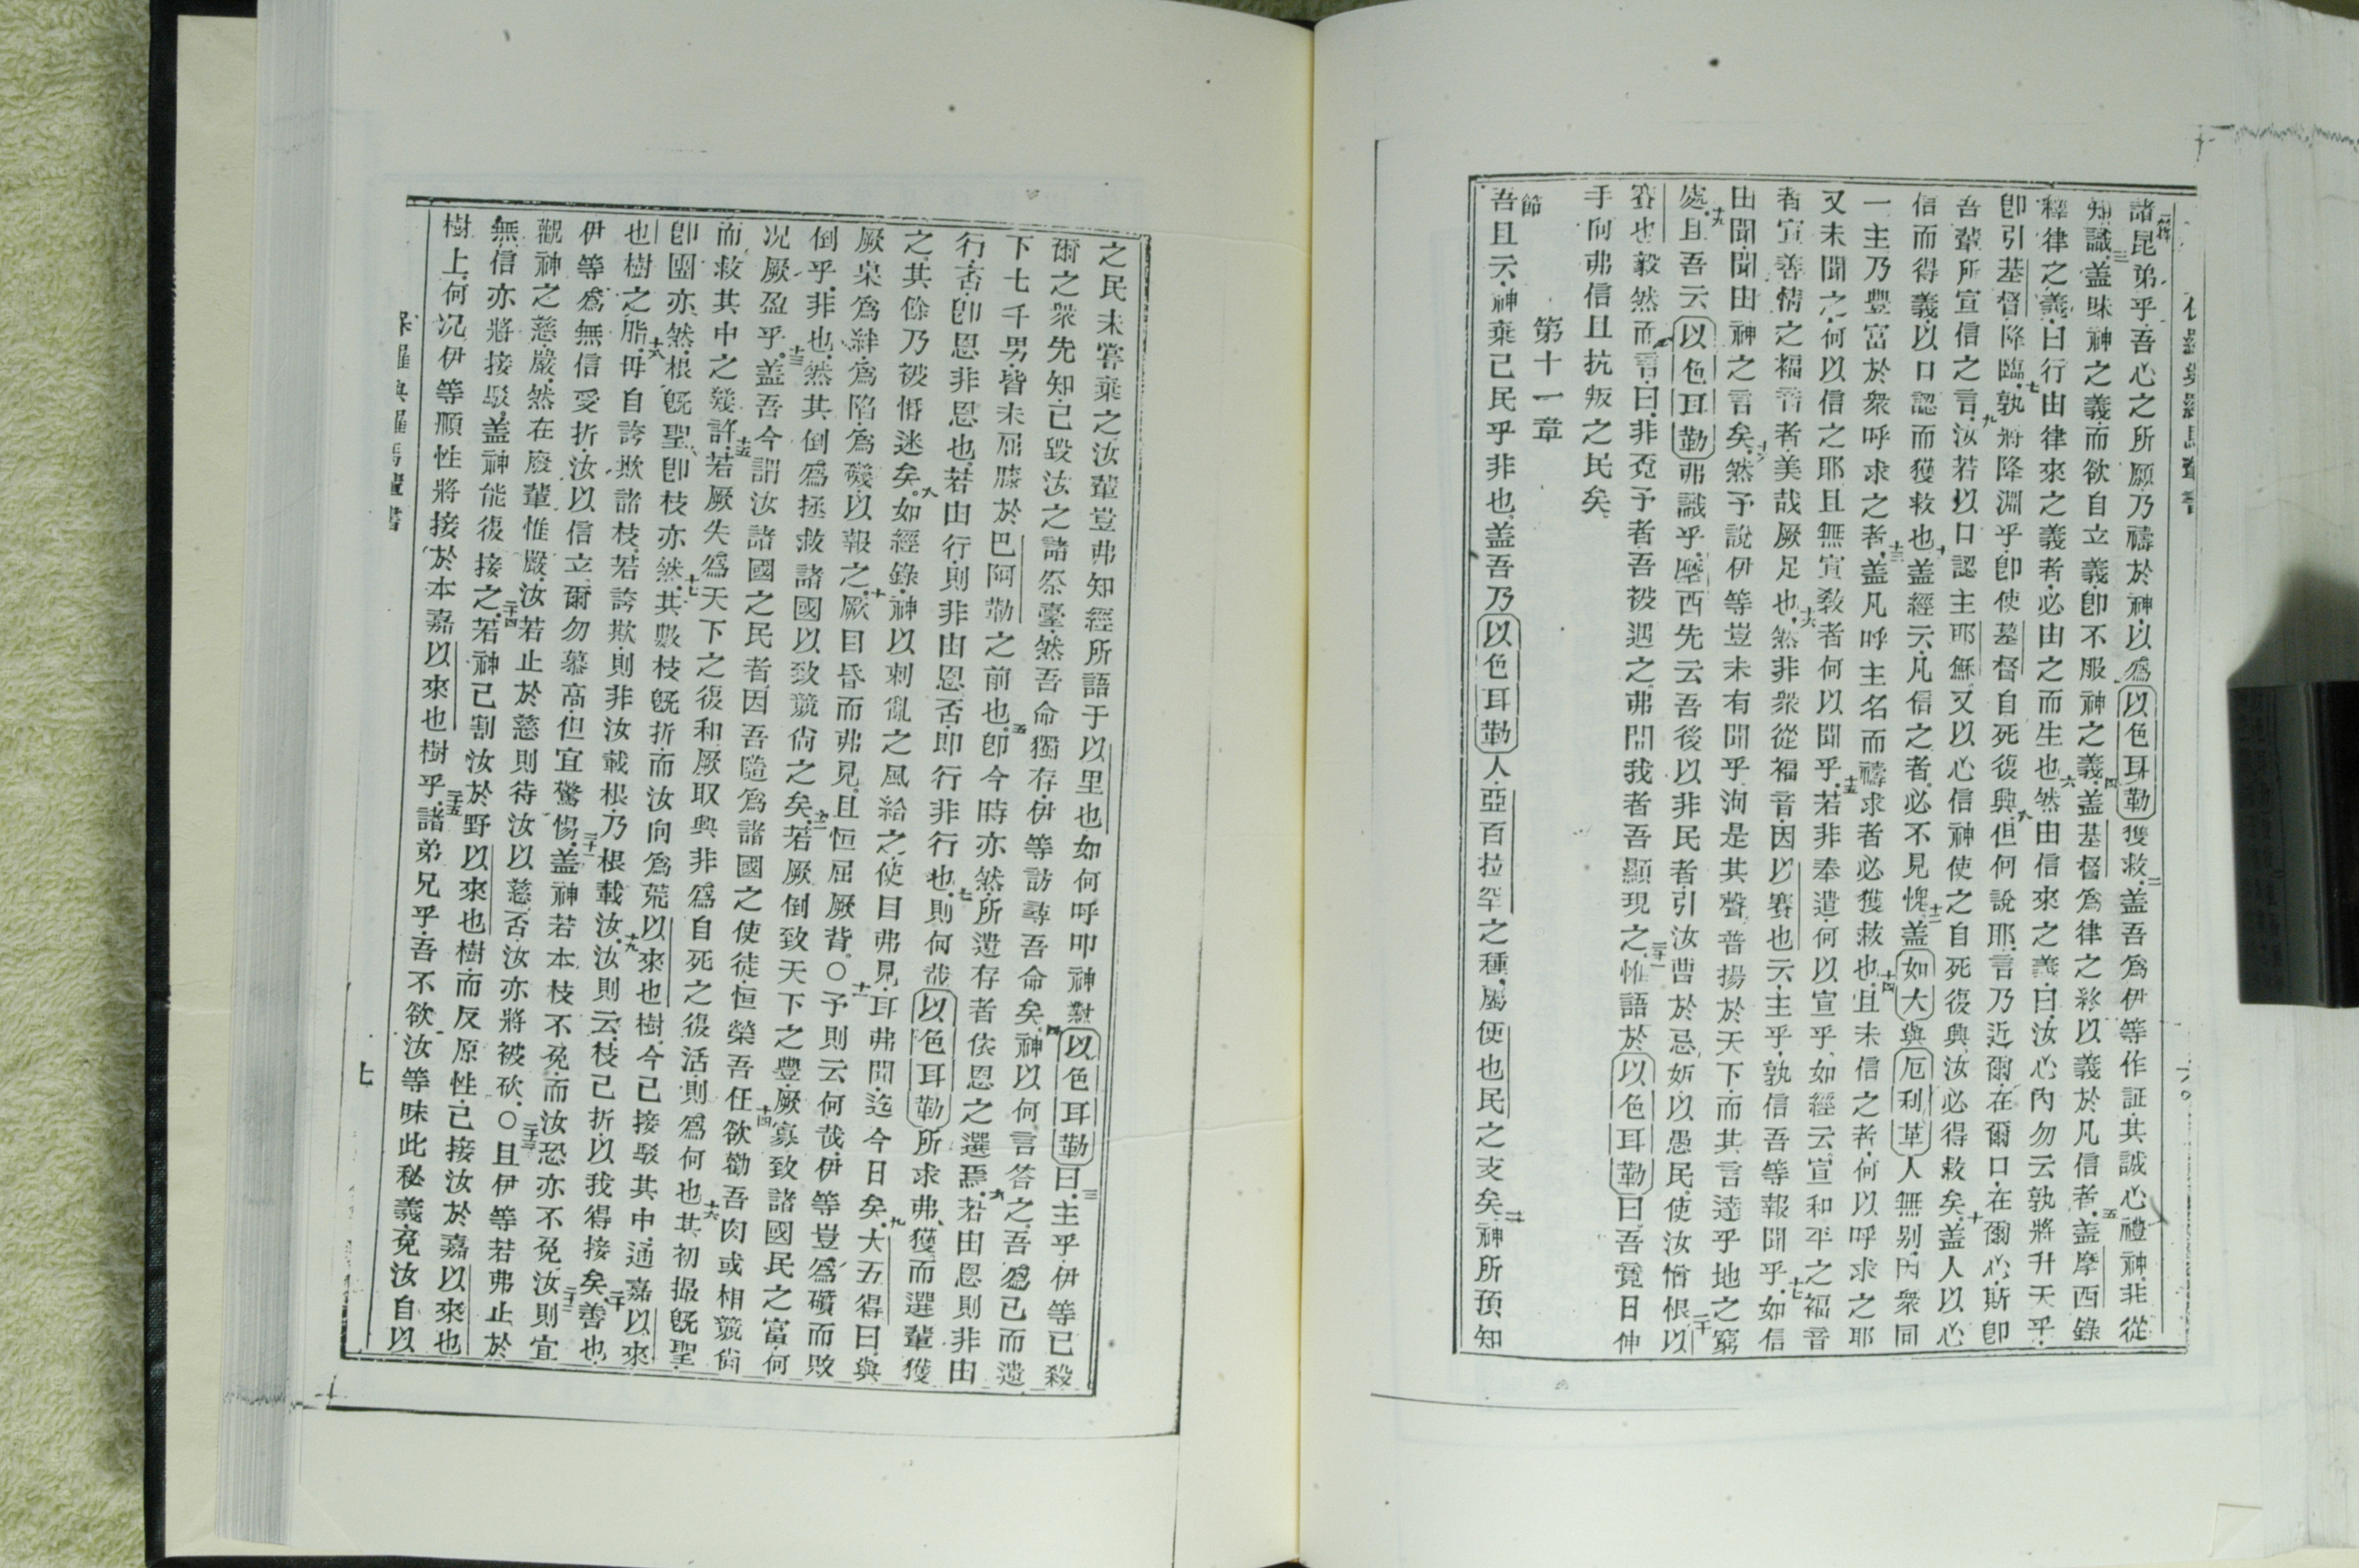 諸昆弟乎吾心之所願乃禱於神以爲以色耳勒獲救二蓋吾爲伊等作証其誠心禮神非從
知識三蓋昧神之義而欲自立義卽不服神之義四蓋基督爲律之終以義於凡信者五蓋摩西錄
釋律之義曰行由律來之義者必由之而生也六然由信來之義曰汝心內勿云孰將升天乎
卽引基督降臨七孰將降淵乎卽使基督自死復興八但何說耶言乃近爾在爾口在爾心斯卽
吾輩所宣信之言九汝若以口認主耶穌又以心信神使之自死復興汝必得救矣十蓋人以心
信而得義以口認而獲救也十一蓋經云凡信之者必不見愧十二蓋如大與厄利革人無別因衆同
一主乃豐富於衆呼求之者十三蓋凡呼主名而禱求者必獲救也十四且未信之者何以呼求之耶
又未聞之何以信之耶且無宣教者何以聞乎十五若非奉遣何以宣乎如經云宣和平之福音
者宣善情之福音者美哉厥足也十六然非衆從福音因以賽也云主乎孰信吾等報聞乎十七如信
由聞聞由神之言矣十八然予說伊等豈未有聞乎洵是其聲普揚於天下而其言達乎地之窮
處十九且吾云以色耳勒弗識乎摩西先云吾後以非民者引汝曹於忌妬以愚民使汝憎恨二十以
賽也毅然而言曰非覔予者吾被遇之弗問我者吾顯現之二十一惟語於以色耳勒曰吾竟日伸
手向弗信且抗叛之民矣
第十一章
節
吾且云神棄己民乎非也蓋吾乃以色耳勒人亞百拉罕之種屬便也民之支矣二神所預知
之民未嘗棄之汝輩豈弗知經所語于以里也如何呼叩神對以色耳勒曰三主乎伊等已殺
爾之衆先知己毀汝之諸祭臺然吾命獨存伊等訪尋吾命矣四神以何言答之吾爲己而遺
下七千男皆未屈膝於巴阿勒之前也五卽今時亦然所遺存者依恩之選焉六若由恩則非由
行否卽恩非恩也若由行則非由恩否卽行非行也七則何哉以色耳勒所求弗獲而選輩獲
之其餘乃被惛迷矣八如經錄神以刺亂之風給之使目弗見耳弗聞迄今日矣九大五得曰與
厥桌爲絆爲陷爲磯以報之十厥目昏而弗見且恒屈厥背○十一予則云何哉伊等豈爲礩而敗
倒乎非也然其倒爲拯救諸國以致競尙之矣十二若厥倒致天下之豐厥寡致諸國民之富何
况厥盈乎十三蓋吾今謂汝諸國之民者因吾隨爲諸國之使徒恒榮吾任十四欲勸吾肉或相競尙
而救其中之幾許十五若厥失爲天下之復和厥取興非爲自死之復活則爲何也十六其初撮旣聖
卽團亦然根旣聖卽枝亦然十七其數枝旣折而汝向爲荒以來也樹今已接駁其中通嘉以來
也樹之脂十八毋自誇欺諸枝若誇欺則非汝載根乃根載汝十九汝則云枝已折以我得接矣二十善也
伊等爲無信受折汝以信立爾勿慕高但宜驚惕二十一蓋神若本枝不免而汝恐亦不免二十二汝則宜
觀神之慈嚴然在廢輩惟嚴汝若止於慈則待汝以慈否汝亦將被砍○二十三且伊等若弗止於
無信亦將接駁蓋神能復接之二十四若神已割汝於野以來也樹而反原性已接汝於嘉以來也
樹上何况伊等順性將接於本嘉以來也樹乎二十五諸弟兄乎吾不欲汝等昧此秘義免汝自以
保羅與羅馬輩書
七